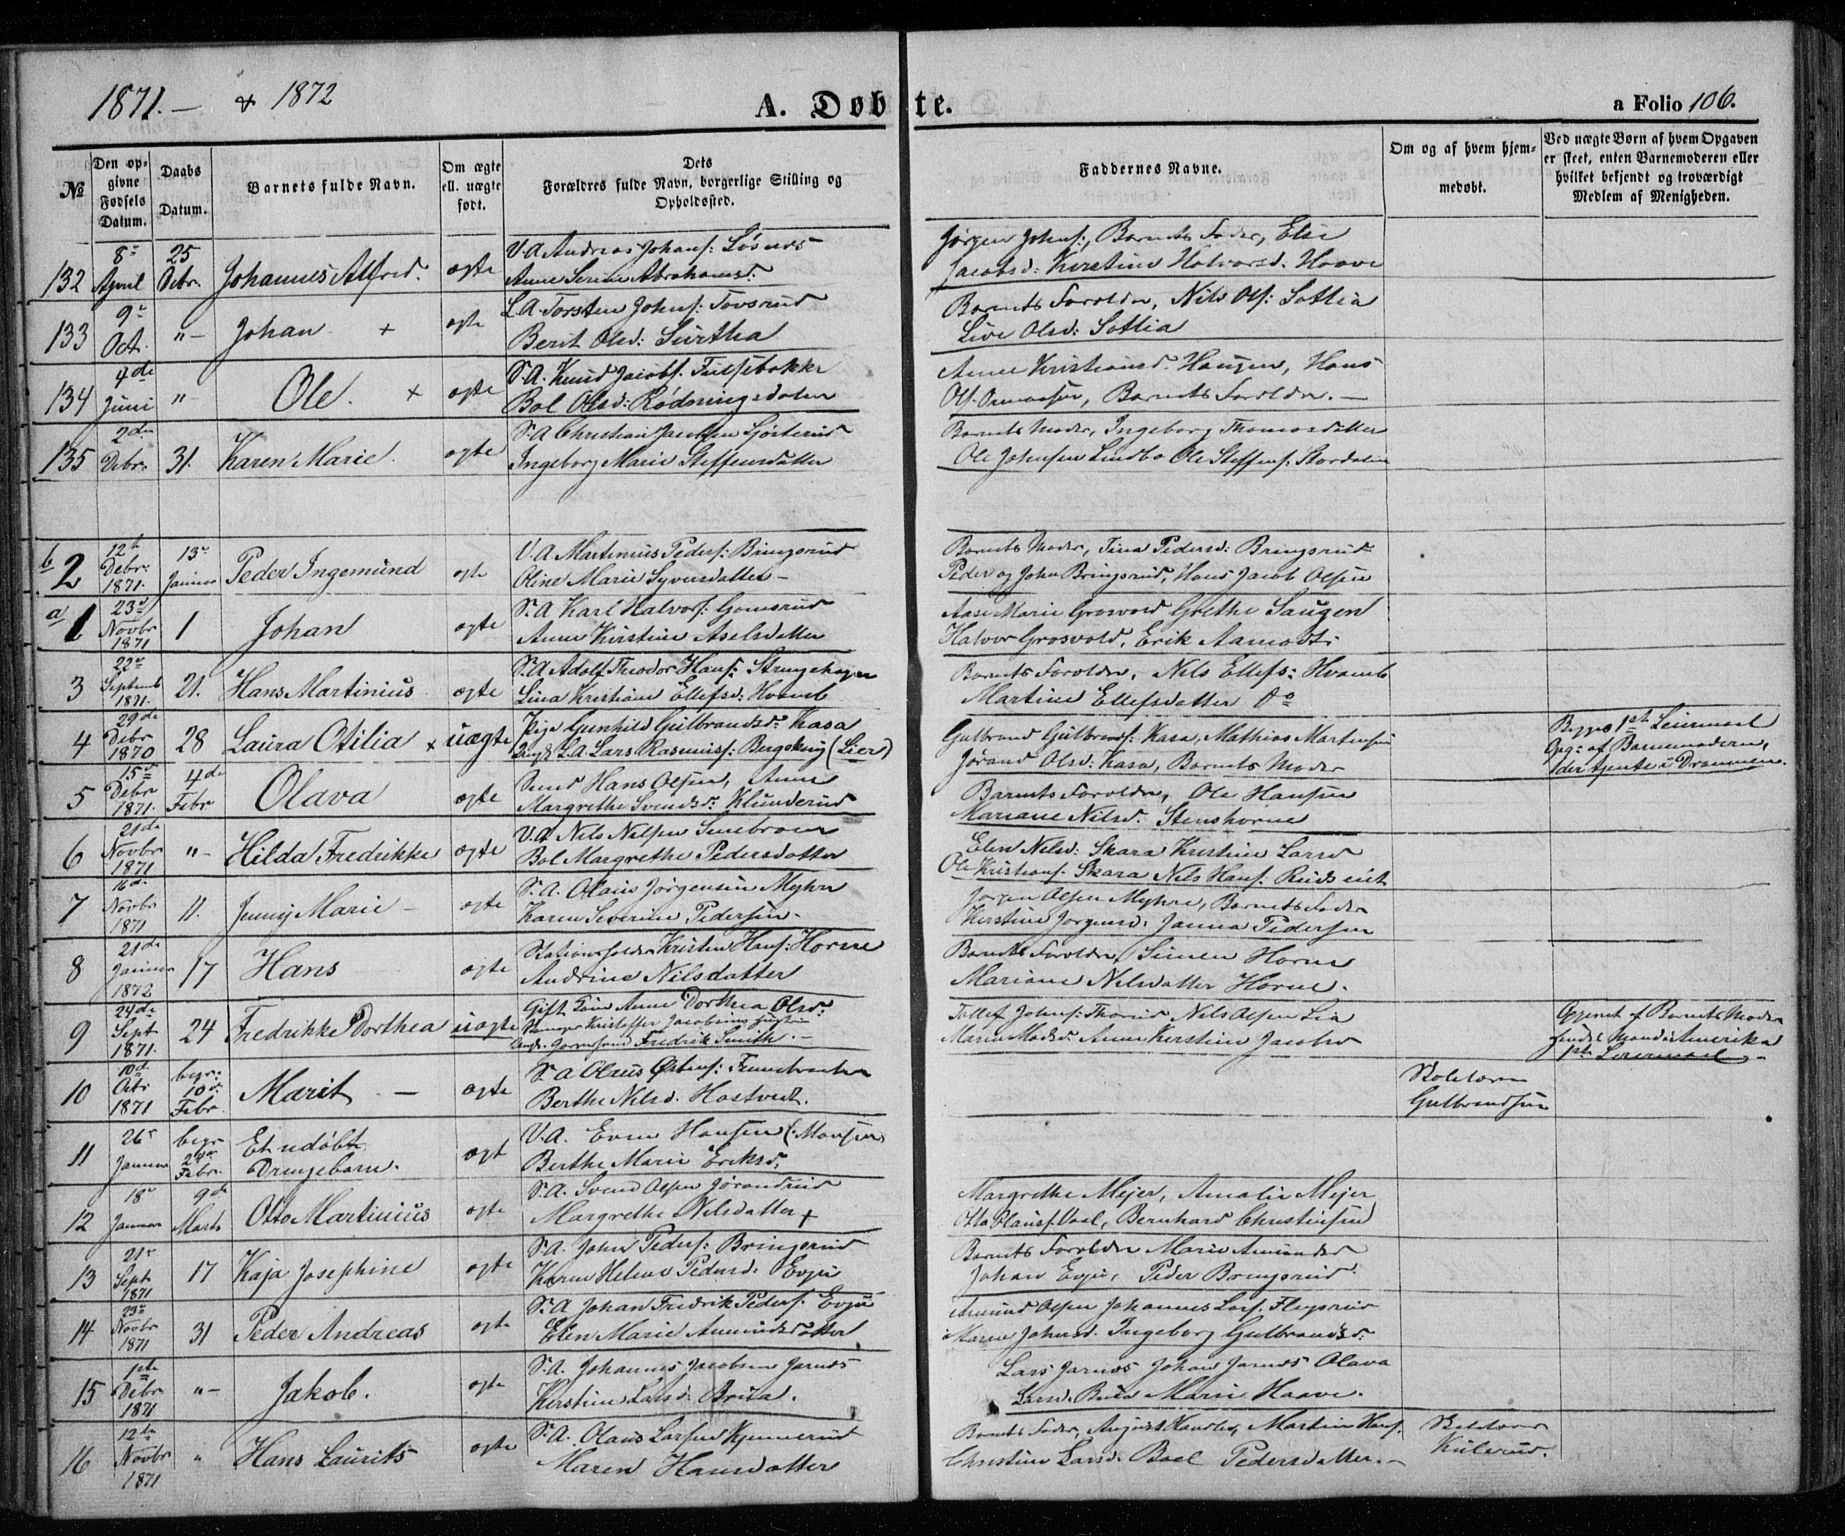 1871. — & 1872
A. Døbte.
a Folio 106.
№
Den opgivne Fødsels Datum.
Daabs Datum.
Barnets fulde Navn.
Om ægte ell. uægte født.
Dets Forældres fulde Navn, borgerlige Stilling og Opholdssted.
Faddernes Navne.
Om og af hvem hjemmedøbt.
Ved uægte Børn af hvem Opgaven er skeet, enten Barnemoderen eller hvilket bekjendt og troværdigt Medlem af Menigheden.
132 8de April 25 Debr. Johannes Alfred. ægte
Andreas Johans:
Anne Serine Abrahamsd.
Jørgen Johns:, Barnets Fader, Else
Jacobsd: Kirstine Halvorsd. Haave
133 9de Oct. "- Johan + ægte
Torsten Johns:
Berit Olsd:
Barnets Forældre, Nils Ols:
Live Olsd:
134 4de Juni " Ole. + ægte
S.A. Knud Jacobs.
Bol Olsd: Rødningsdalen
Anne Kristiansd. Haugen, Hans
Barnets Forældre. —
135 2den Debr. 31. Karen Marie. ægte
S.A. Christian Jacobsen
Ingeborg Marie Steffensdatter
Barnets Moder, Ingeborg Thomasdatter
Ole Johnsen Lindbo Ole Steffens: Stordalen
b 2 12te Debr: 1871. 13de Januar Peder Ingemund ægte
V.A. Martinius Peders: Bringsrud
Oline Marie Syversdatter —
Barnets Moder, Tina Pedersd: Bringsrud
Peder og John Bringsrud, Hans Jacob Olsen
a 1 23de Novbr 1871 1 Johan ægte
S.A. Karl Halvors: Gomsrud
Anne Kirstine Axelsdatter
Aase Marie Grosvold Grethe Haugen
Halvor Grosvold, Erik Aamodt
3 22de Septemb 1871. 21. Hans Martinius ægte
S.A. Adolf Theodor Hans:
Lina Kristiane Ellefsd. Hvamb
Barnets Forældre, Nils Ellefs: Hvamb
Martine Ellefsdatter Do
4 29de Debr 1870 28 Laura Otilia + uægte
Pige Gunhild Gulbrandsd: Kasa
Ungk. L.A. Lars Rasmuss: (Lier)
Gulbrand Gulbrands: Kasa, Mathias Martinsen
Jørand Olsd: Kasa, Barnets Moder
Begges 1ste Leiermaal
Opg: af Barnemoderen,
der tjente i Drammen.
5 15de Debr 1871. 4de Febr Olava ægte
Hans Olsen, Anne
Margrethe Svendsd: Klunderud
Barnets Forældre, Ole Hansen
Mariane Nilsd: Stenshorne
6 21de Novbr 1871 "- Hilda Fredrikke ægte
V.A. Nils Nilsen
Bol Margrethe Pedersdatter
Elen Nilsd: Skara Kristine Larsd
Ole Kristians: Skara Nils Hans:
7 16de Novbr 1871 11. Jenny Marie — ægte
S.A. Olaus Jørgensen Myhre
Karen Severine Pedersen —
Jørgen Olsen Myhre, Barnets Fader
Kirstine Jørgensd: Janna Pedersen
8 21de Januar 1872 17 Hans ægte
Stationsholder Kristen Hans: Horne
Andrine Nilsdatter
Barnets Forældre, Simen Horne
Mariane Nilsdatter Horne.
9 24de Sept 1871. 24 Fredrikke Dorthea uægte
Gift Anne Dorthea Olsd:
Kristoffer Jacobsens
Fredrik Smith. —
Tollef Johns: Nils Olsen Lia
Maren Madsd. Anne Kirstine Jacobsd
Opgivet af Barnets Moder
hendes Mand i Amerika
1ste Leiermaal —
10 10de Octbr 1871 begr: 10de Febr. Marit — ægte
S.A. Olaus
Berthe Nilsd. Hostvedt.
Skolelærer
Gulbrandsen
11 26de Januar begr 24de Febr. Et udøbt Drengebarn. ægte
V.A. Even Hansen
Berthe Marie Eriksd.
12 18de Januar 9de Marts Otto Martinius ægte
S.A. Svend Olsen Jørandrud
Margrethe Nilsdatter +
Margrethe Mejer, Amalie Mejer
Otto Bernhard Christensen
13 21de Sept 1871 17 Kaja Josephine ægte
S.A. John Peders: Bringsrud
Karen Helene Pedersd: Evju
Barnets Forældre Marie
Johan Evju, Peder Bringsrud.
14 23de Novbr 1871 31 Peder Andreas ægte
S.A. Johan Fredrik Peders: Evju
Elen Marie Amundsdatter
Amund Olsen Johannes Lars: Flugsrud
Maren Johnsd. Ingeborg Gulbrandsd:
15 1ste Debr 1871 "- Jakob. ægte
S.A. Johannes Jacobsen Jarnæs
Kirstine Larsd: Brua.
Lars Jarnæs Johan Jarnæs Olava
Larsd. Brua Marie Haave.
16 12te Novbr 1871 " Hans Laurits ægte
S.A. Olaus Larsen Kjennerud
Maren Hansdatter
Barnets Fader, August Martin Hans:
Christine Larsd. Boel Pedersdatter. —
Skolelærer
Kulerud.